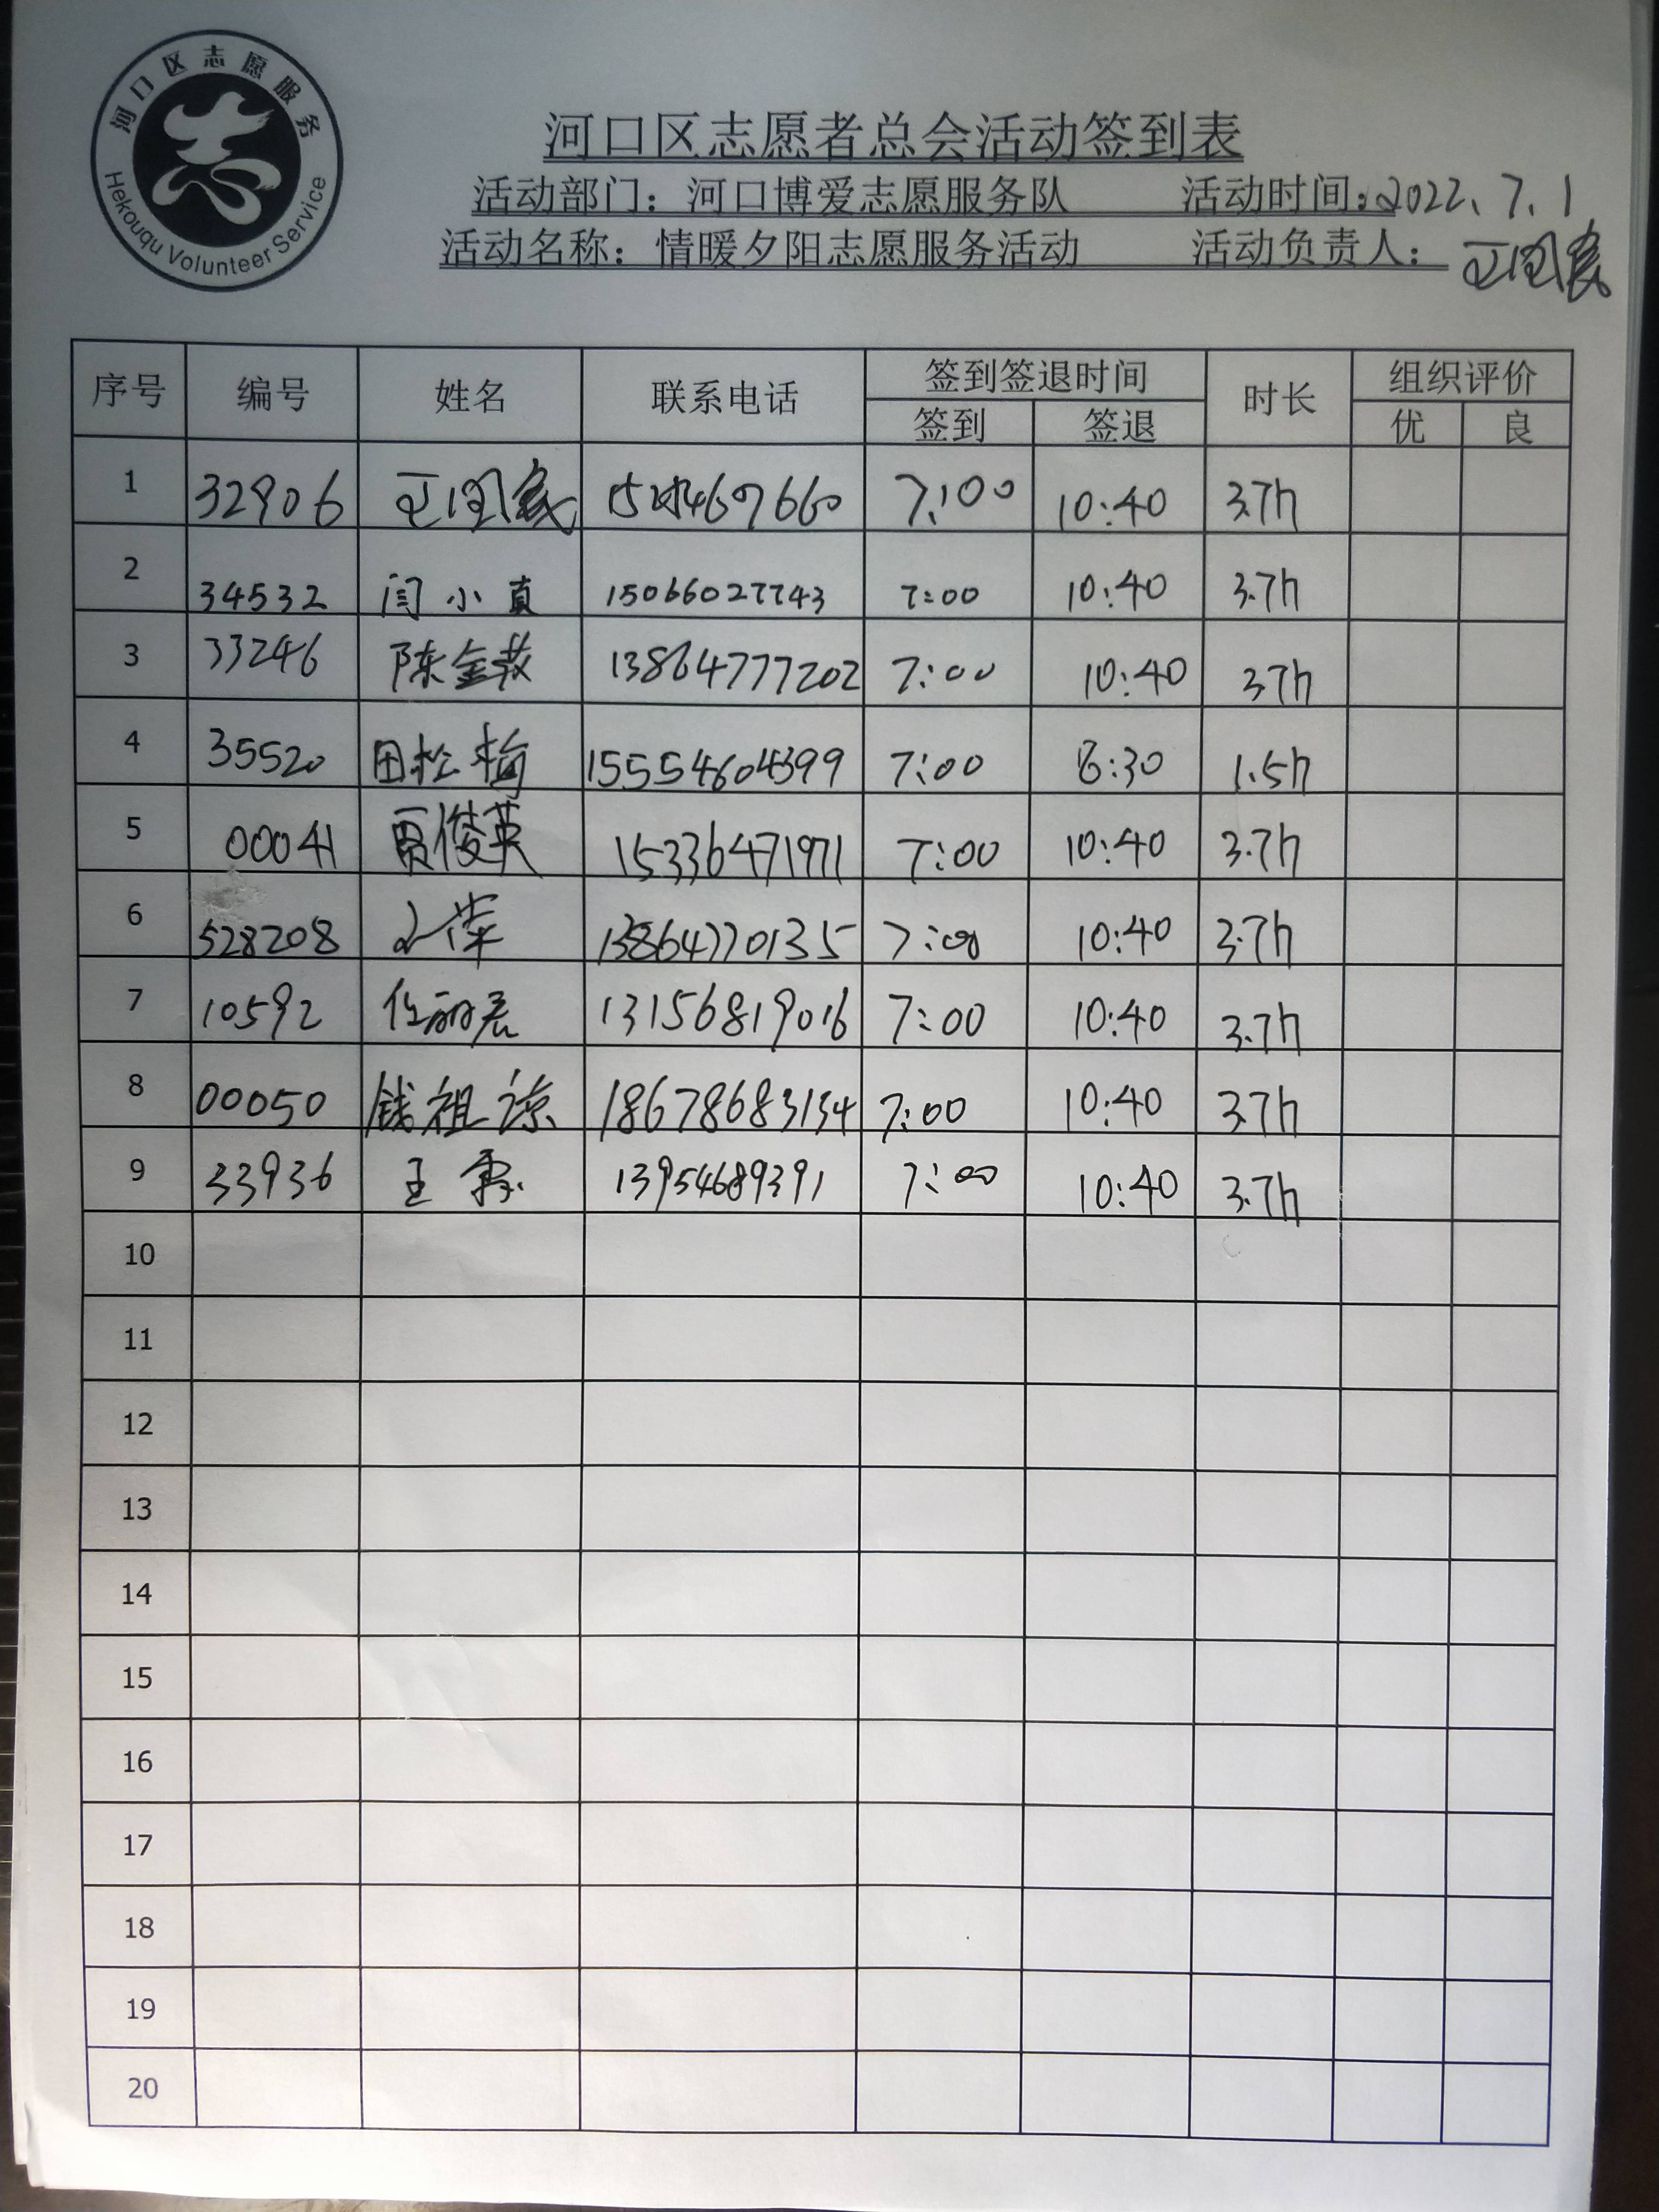 河口区志愿服务
Hekouqu Volunteer Service
河口区志愿者总会活动签到表
活动部门：河口博爱志愿服务队 活动时间：2022、7、1
活动名称：情暖夕阳志愿服务活动 活动负责人：
序号 编号 姓名 联系电话 签到签退时间 时长 组织评价
签到 签退 优 良
1 32906 7:00 10:40 3.7h
2 34532 闫小真 15066027743 7:00 10:40 3.7h
3 33246 陈金 13864777202 7:00 10:40 37h
4 35520 田松梅 15554604399 7:00 8:30 1.5h
5 00041 贾俊英 15336471971 7:00 10:40 3.7h
6 528208 13864770135 7:00 10:40 3.7h
7 10592 任丽君 13156819016 7:00 10:40 3.7h
8 00050 钱祖谅 18678683134 7:00 10:40 3.7h
9 33936 王 13954689391 7:00 10:40 3.7h
10
11
12
13
14
15
16
17
18
19
20